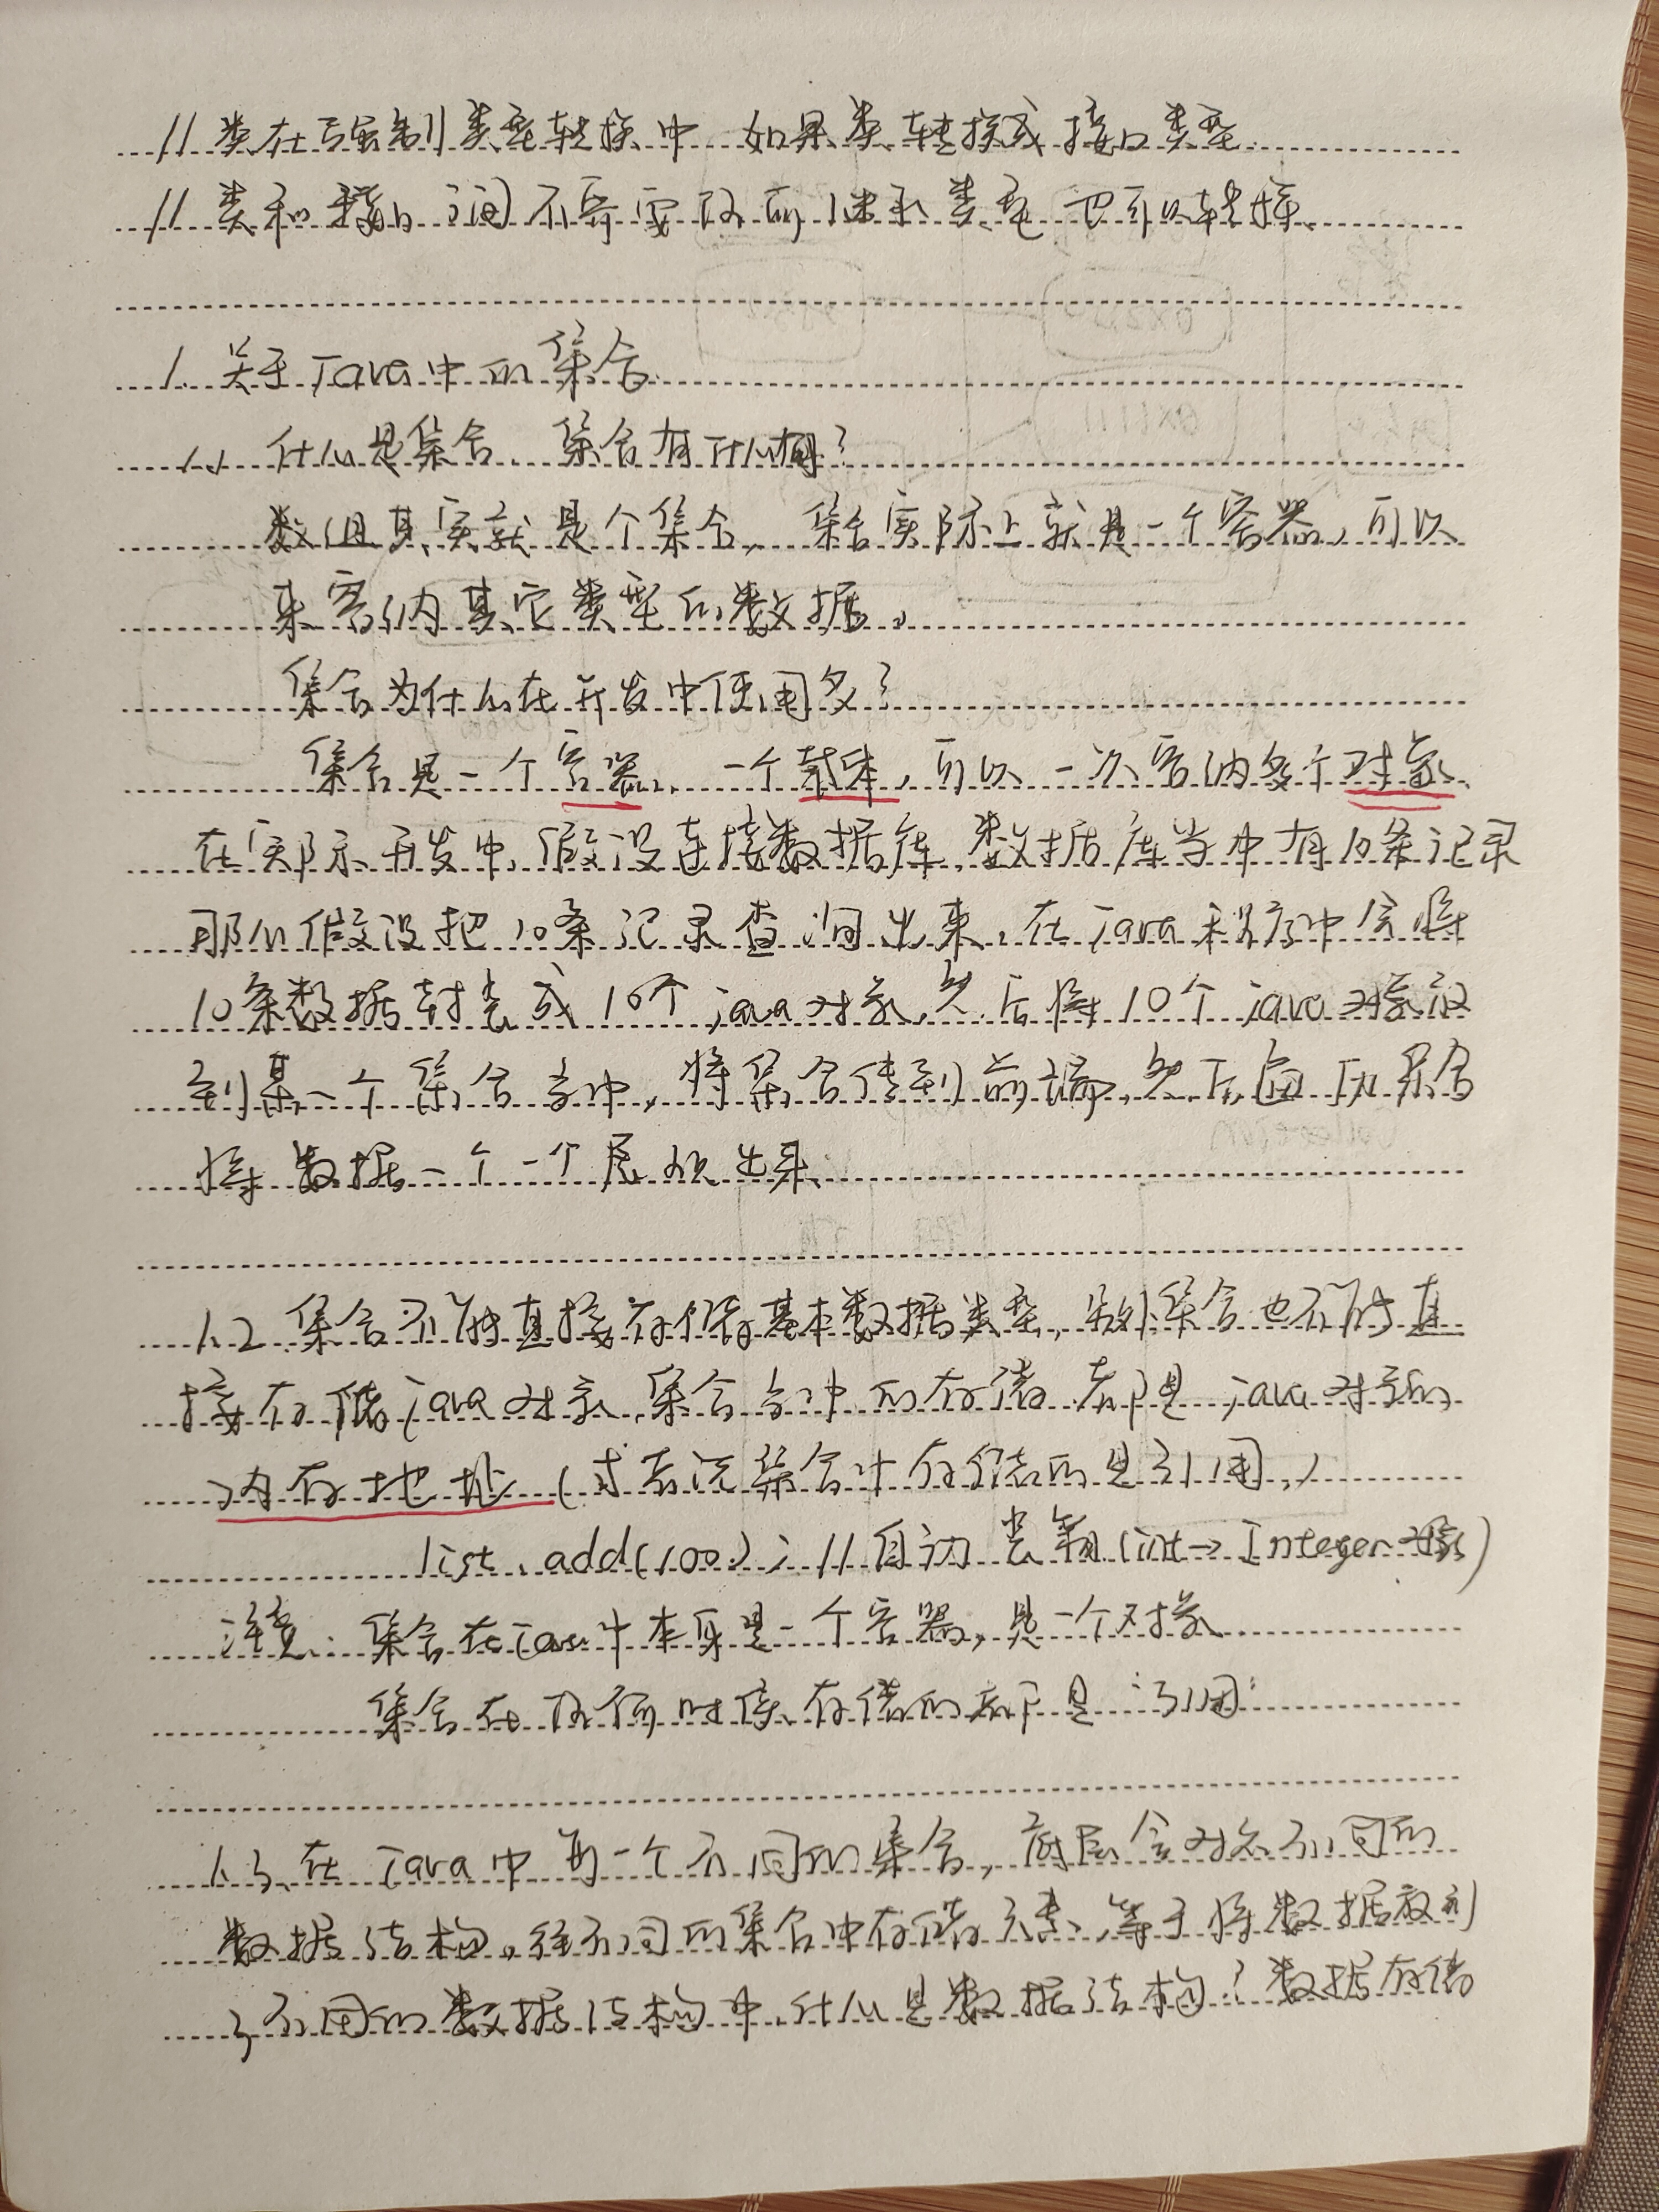 // 类在强制类型转换中 如果类转换成接口类型
// 类和接口之间不需要存在继承类型也可以转换
1. 关于Java中的集合
1.1 什么是集合、集合有什么用?
数组其实就是个集合, 集合实际上就是一个容器, 可以
来容纳其它类型的数据。
集合为什么在开发中使用多?
集合是一个容器、一个载体, 可以一次容纳多个对象、
在实际开发中, 假设连接数据库, 数据库当中有10条记录
那么假设把10条记录查询出来, 在Java程序中会将
10条数据封装成10个java对象, 然后将10个java对象放
到某一个集合当中, 将集合传到前端, 然后遍历集合
将数据一个一个展现出来
1.2 集合不能直接存储基本数据类型, 另外集合也不能直
接存储java对象, 集合当中的存储都是java对象的
内存地址 (或者说集合中存储的是引用, )
list.add(100); //自动装箱 (int→Integer对象)
注意: 集合在Java中本身是一个容器, 是一个对象
集合在任何时候存储的都是"引用"
1.3、在Java中每一个不同的集合, 底层会对应不同的
数据结构, 往不同的集合中存储元素, 等于将数据放到
了不同的数据结构中, 什么是数据结构? 数据存储